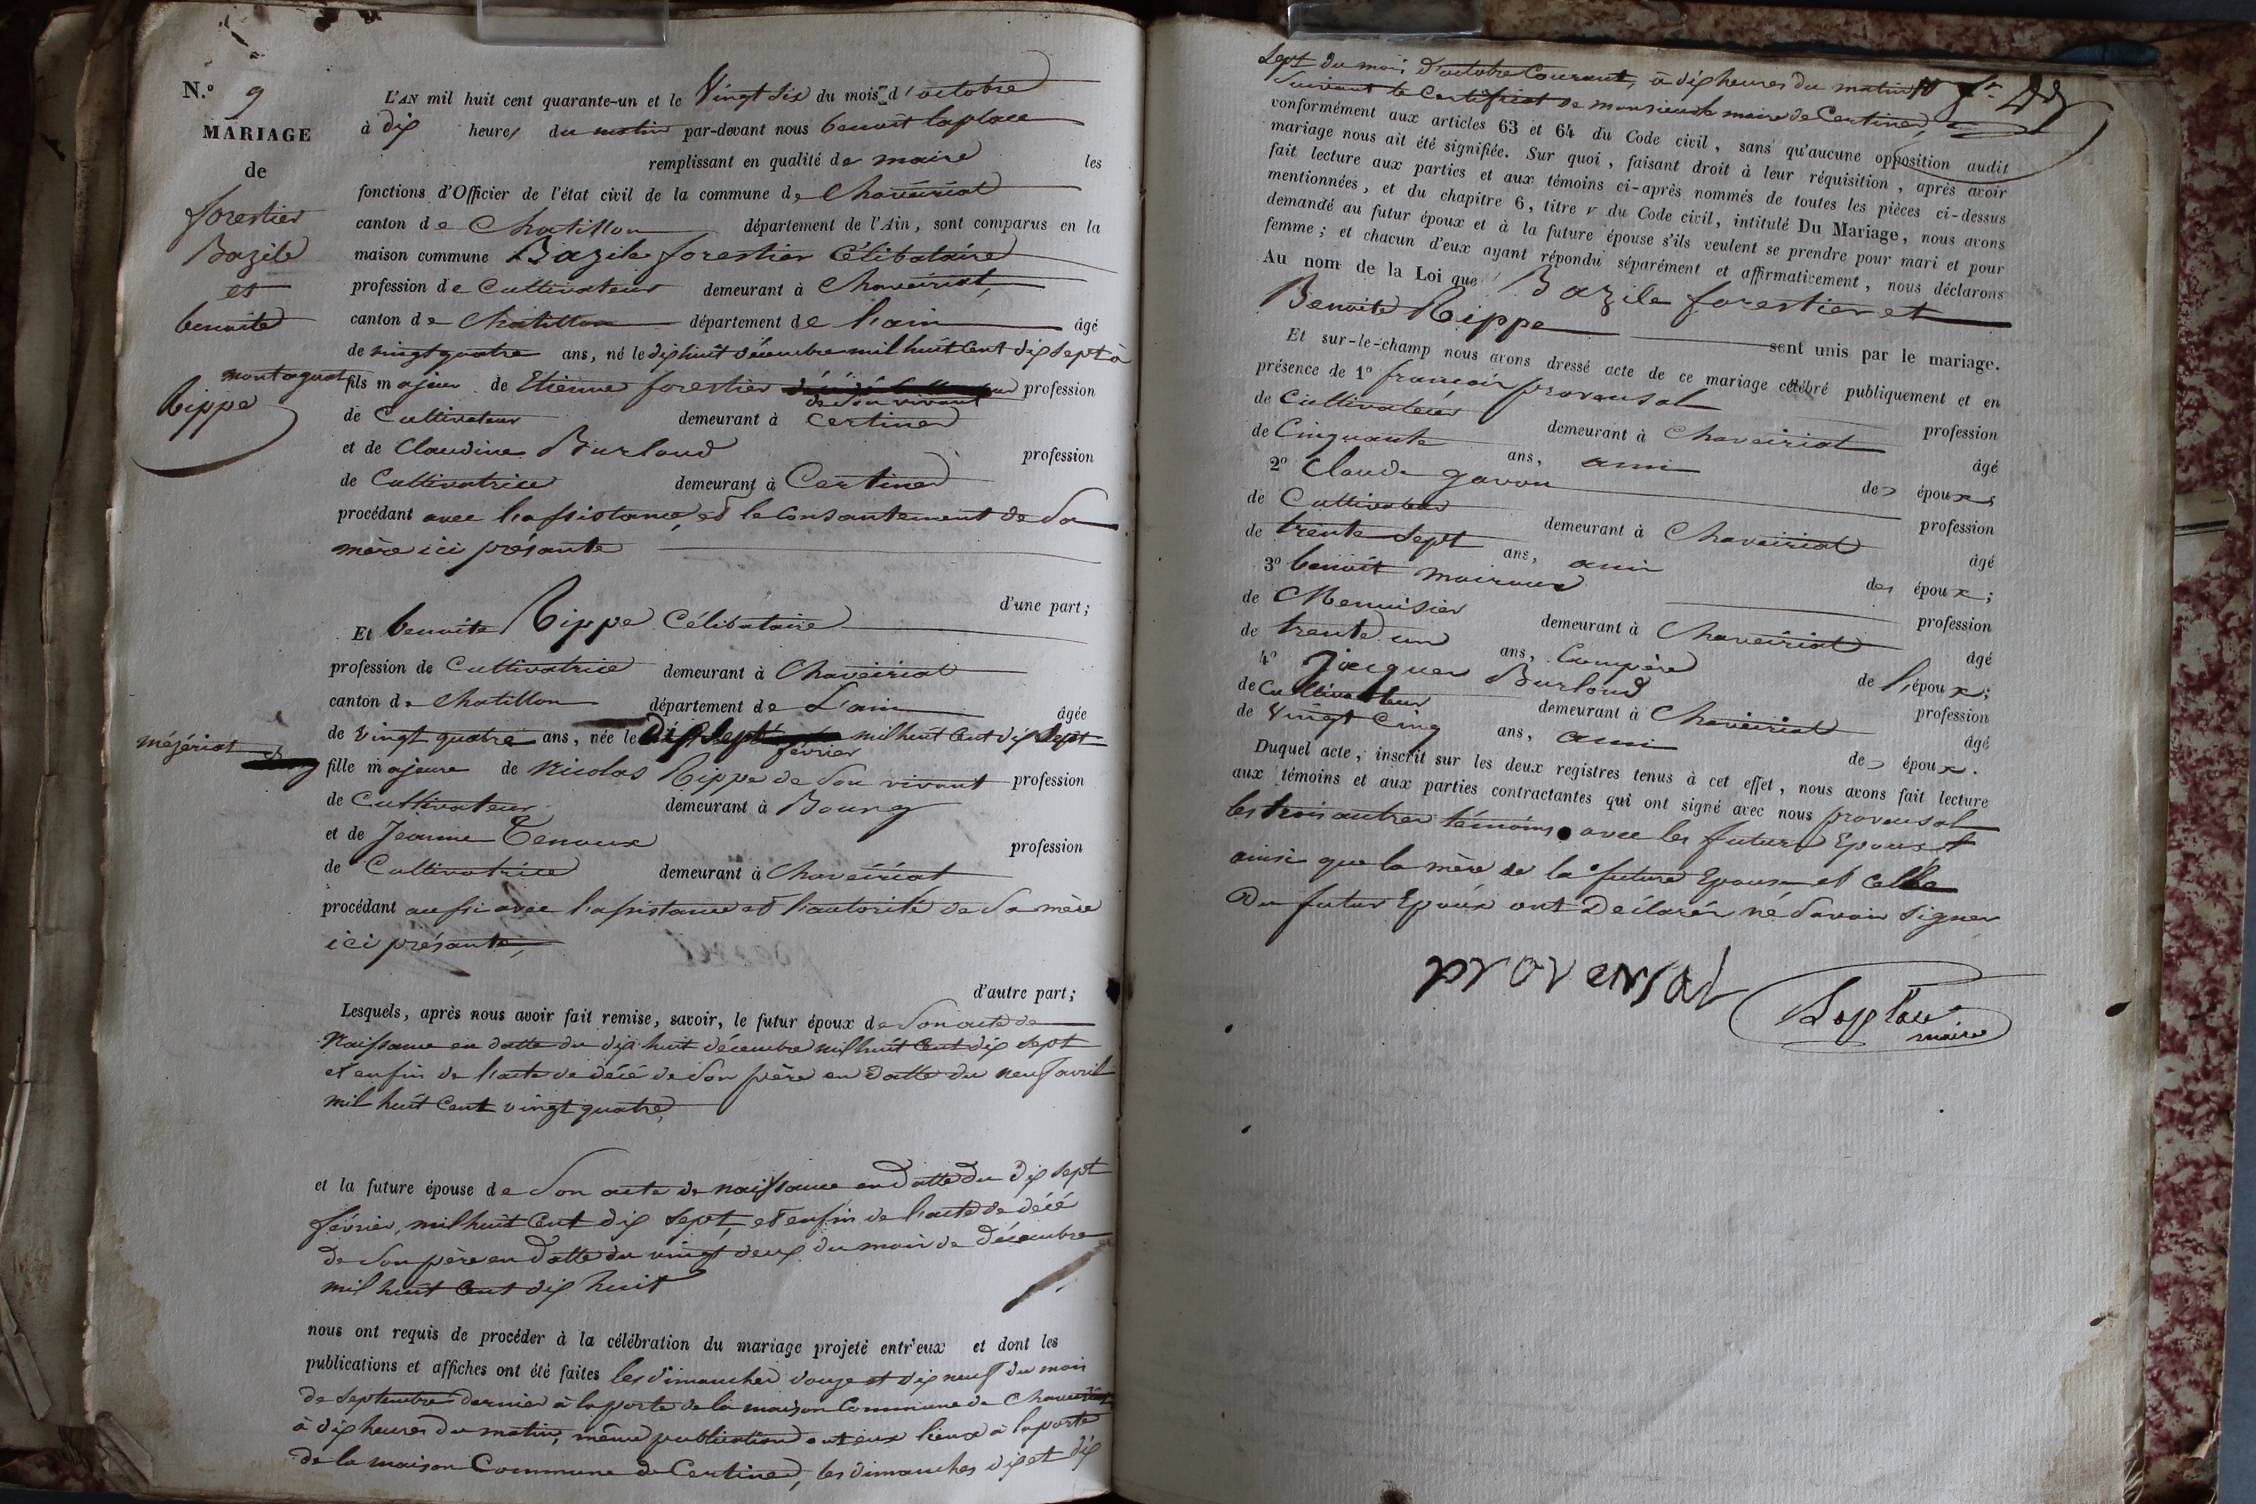 N.º 9
MARIAGE
de
forestier
Bazile
et
benoite
Rippe
L'AN mil huit cent quarante-un et le Vingt six du mois d'octobre
à dix heures du matin par-devant nous benoit laplace
remplissant en qualité de maire les
fonctions d'Officier de l'état civil de la commune de Chaveiriat
canton de Chatillon département de l'Ain, sont comparus en la
maison commune Bazile forestier Célibataire
profession de Cultivateur demeurant à Chaveiriat,
canton de Chatillon département de l'ain âgé
de vingt quatre ans, né le dix huit décembre mil huit Cent dix sept à
montagnat fils majeur de Etienne forestier de son vivant profession
de Cultivateur demeurant à Certines
et de Claudine Burloud profession
de Cultivatrice demeurant à Certines
procédant avec l'assistance et le Consantement de Sa
mère ici présante
d'une part;
Et benoite Rippe Célibataire
profession de Cultivatrice demeurant à Chaveiriat
canton de Chatillon département de L'ain âgée
de Vingt quatre ans, née le dix Sept février mil huit Cent dix Sept
mézériat
fille majeure de Nicolas Rippe de Son vivant profession
de Cultivateur demeurant à Bourg
et de Jeanne Tenoux profession
de Cultivatrice demeurant à Chaveiriat
procédant aussi avec l'assistance et l'autorité de Sa mère
ici présante,
d'autre part;
Lesquels, après nous avoir fait remise, savoir, le futur époux de Son acte de
Naissance en datte du dix huit décembre mil huit Cent dix sept
et enfin de l'acte de décé de Son père en datte du neuf avril
mil huit Cent vingt quatre,
et la future épouse de Son acte de naissance en datte du dix sept
février, mil huit Cent dix sept, et enfin de l'acte de décé
de Son père en datte du vingt deux du mois de décembre
mil huit Cent dix huit
nous ont requis de procéder à la célébration du mariage projeté entr'eux et dont les
publications et affiches ont été faites les dimanches douze et dix neuf du mois
de septembre dernier à la porte de la maison Commune de Chaveiriat
à dix heures du matin, même publication ont eux lieux à la porte
de la maison Commune de Certines, les dimanches dix et dix
sept du mois d'octobre Courant, à dix heures du matin
Suivant le Certificat de monsieur le maire de Certines,
conformément aux articles 63 et 64 du Code civil, sans qu'aucune opposition audit
mariage nous ait été signifiée. Sur quoi, faisant droit à leur réquisition, après avoir
fait lecture aux parties et aux témoins ci-après nommés de toutes les pièces ci-dessus
mentionnées, et du chapitre 6, titre v du Code civil, intitulé Du Mariage, nous avons
demandé au futur époux et à la future épouse s'ils veulent se prendre pour mari et pour
femme; et chacun d'eux ayant répondu séparément et affirmativement, nous déclarons
Au nom de la Loi que Bazile forestier et
Benoite Rippe sont unis par le mariage.
Et sur-le-champ nous avons dressé acte de ce mariage célébré publiquement et en
présence de 1º francois provensal profession
de Cultivateur demeurant à Chaveiriat âgé
de Cinquante ans, ami des époux;
2º Claude gavon profession
de Cultivateur demeurant à Chaveiriat âgé
de trente sept ans, ami des époux;
3º benoit moiroux profession
de Menuisier demeurant à Chaveiriat âgé
de trente un ans, Compère de l'époux;
4º Jacques Burloud profession
de Cultivateur demeurant à Chaveiriat âgé
de Vingt Cinq ans, ami des époux.
Duquel acte, inscrit sur les deux registres tenus à cet effet, nous avons fait lecture
aux témoins et aux parties contractantes qui ont signé avec nous provensal
les trois autres témoins avec les futurs Epoux et
ainsi que la mère de la future Epouse et Celle
Du futur Epoux ont Déclarér né Savoir Signer
provensal
Laplace
maire